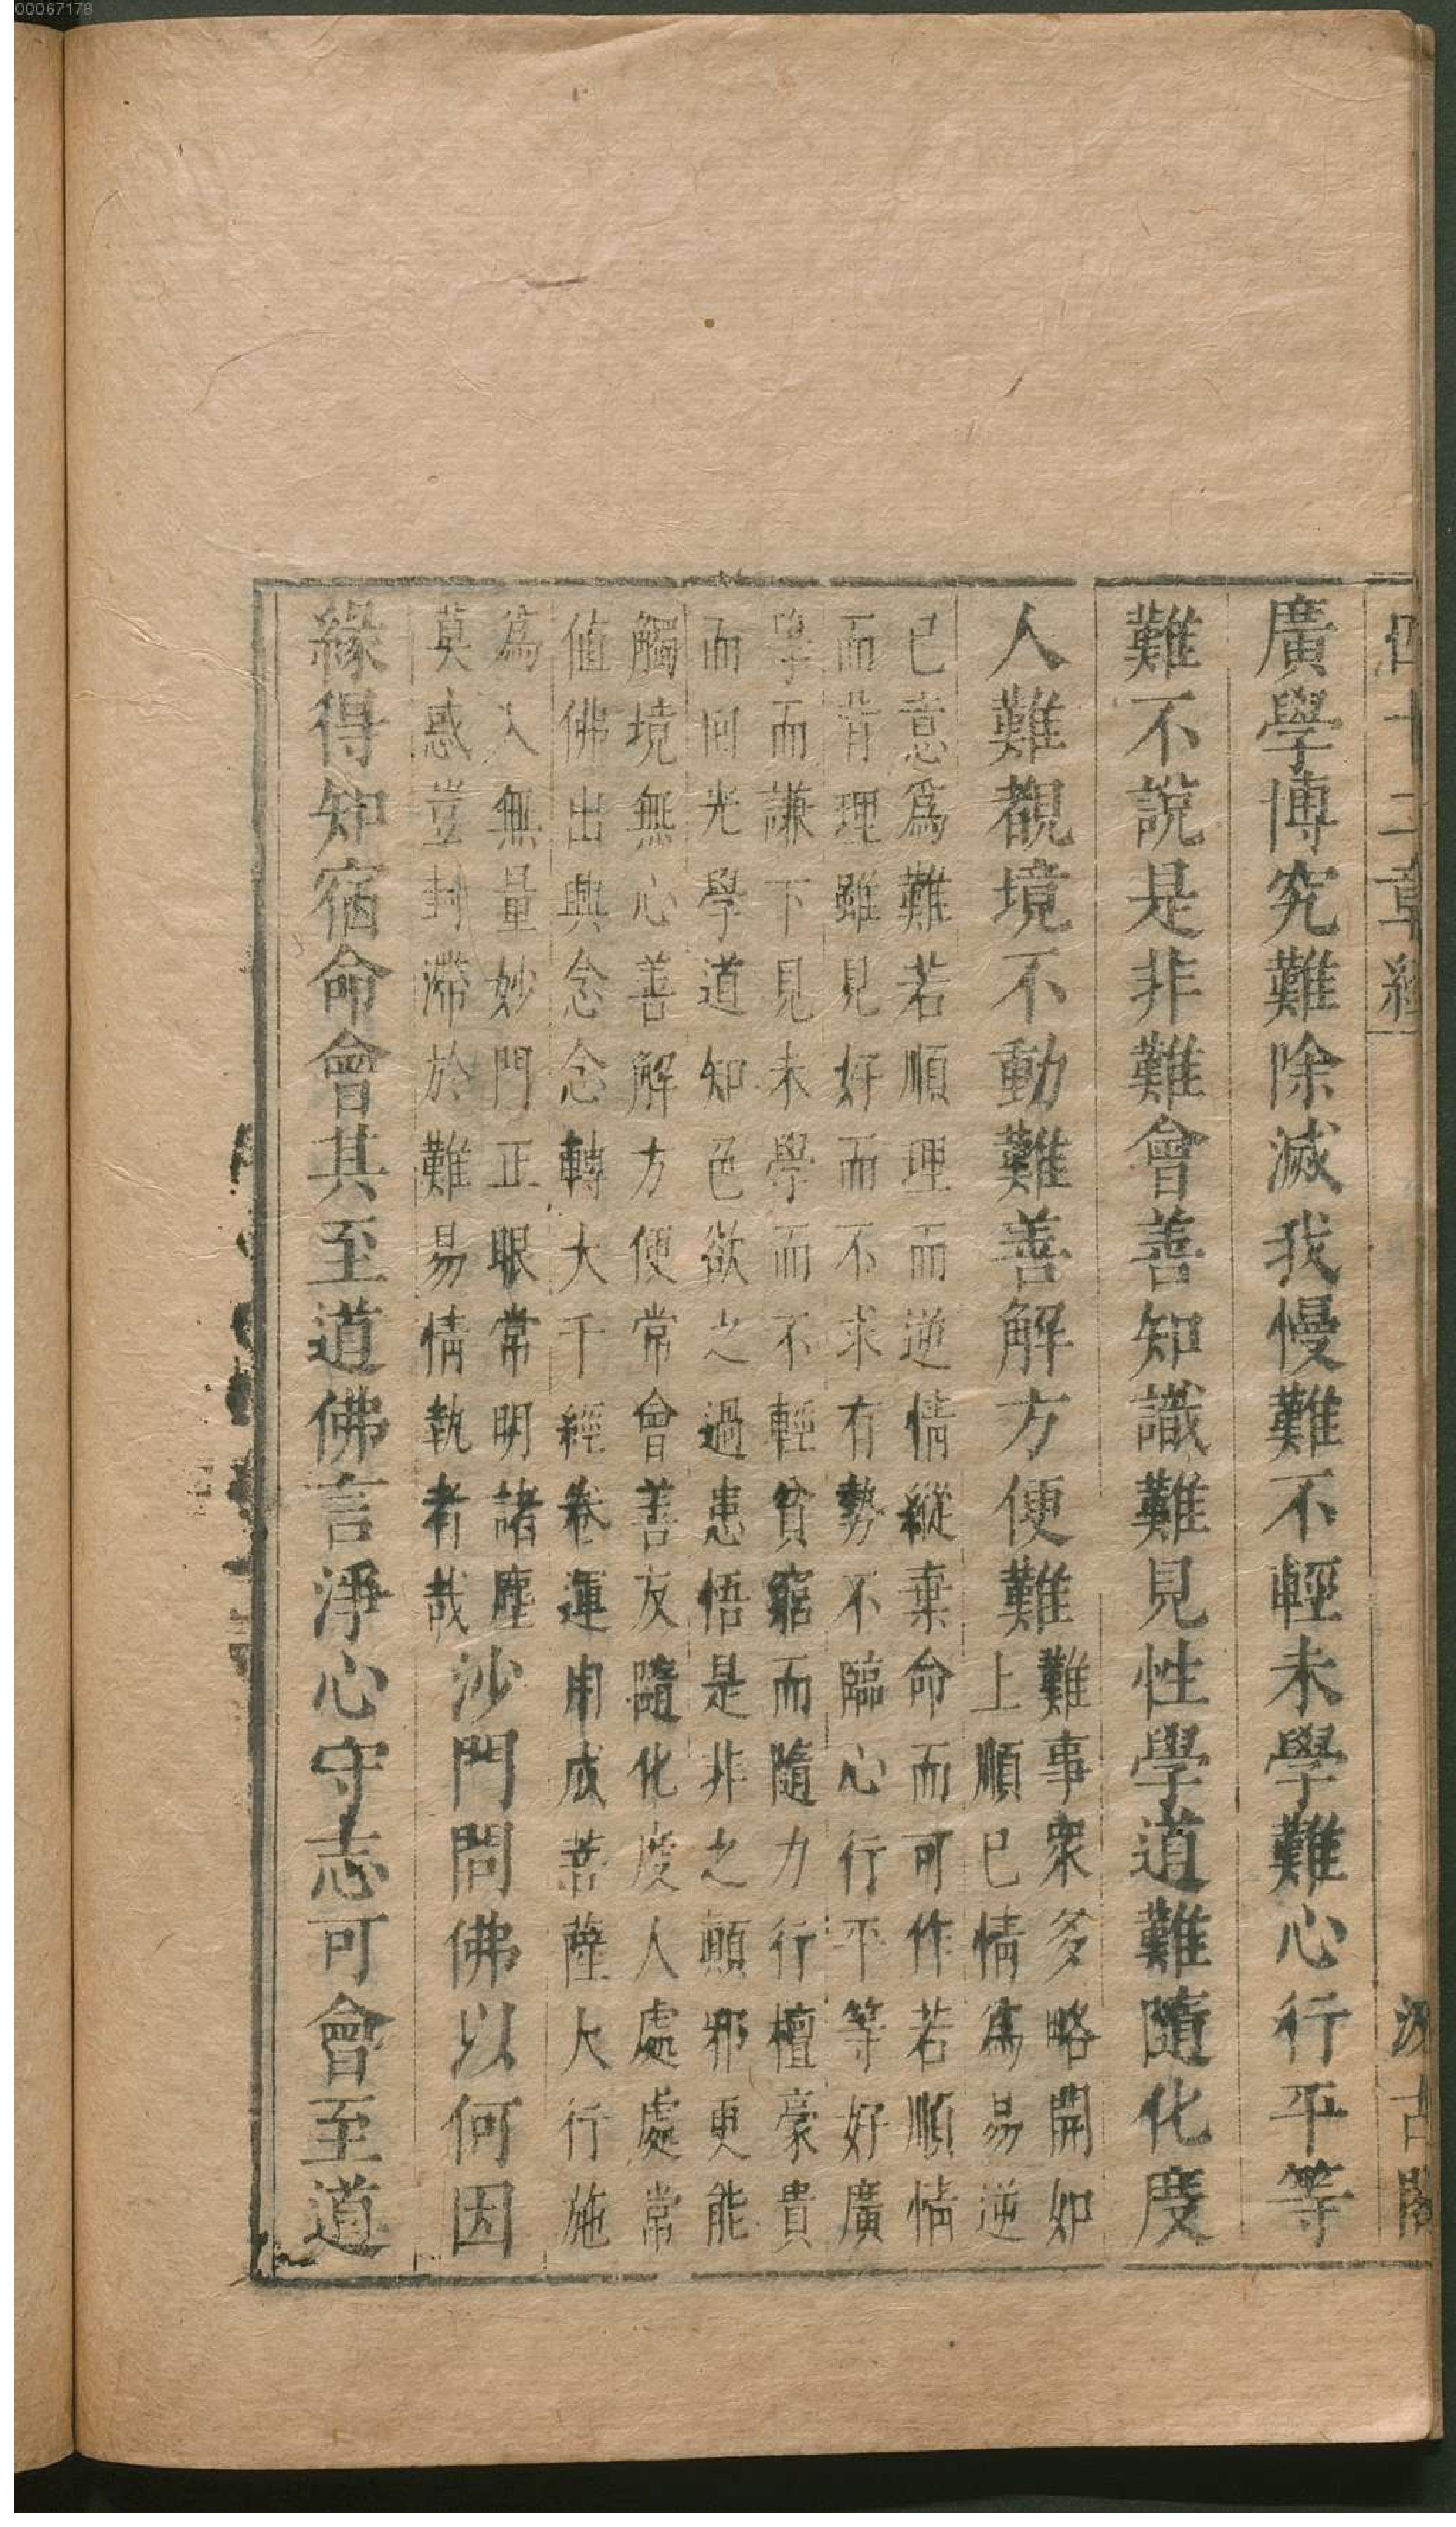 00067178
四十二章經 汲古閣
廣學博究難除滅我慢難不輕未學難心行平等
難不說是非難會善知識難見性學道難隨化度
人難覩境不動難善解方便難
難事衆多略開如
上順已情為易逆
已意為難若順理而逆情縱棄命而可作若順情
而背理雖見好而不求有勢不臨心行平等好廣
學而謙下見未學而不輕貧窮而隨力行檀豪貴
而回光學道知色欲之過患悟是非之顛邪更能
觸境無心善解方便常會善友隨化度人處處常
值佛出興念念轉大千經卷運用成菩薩大行施
為入無量妙門正眼常明諸塵
莫惑豈封滯於難易情執者哉
沙門問佛以何因
緣得知宿命會其至道佛言淨心守志可會至道